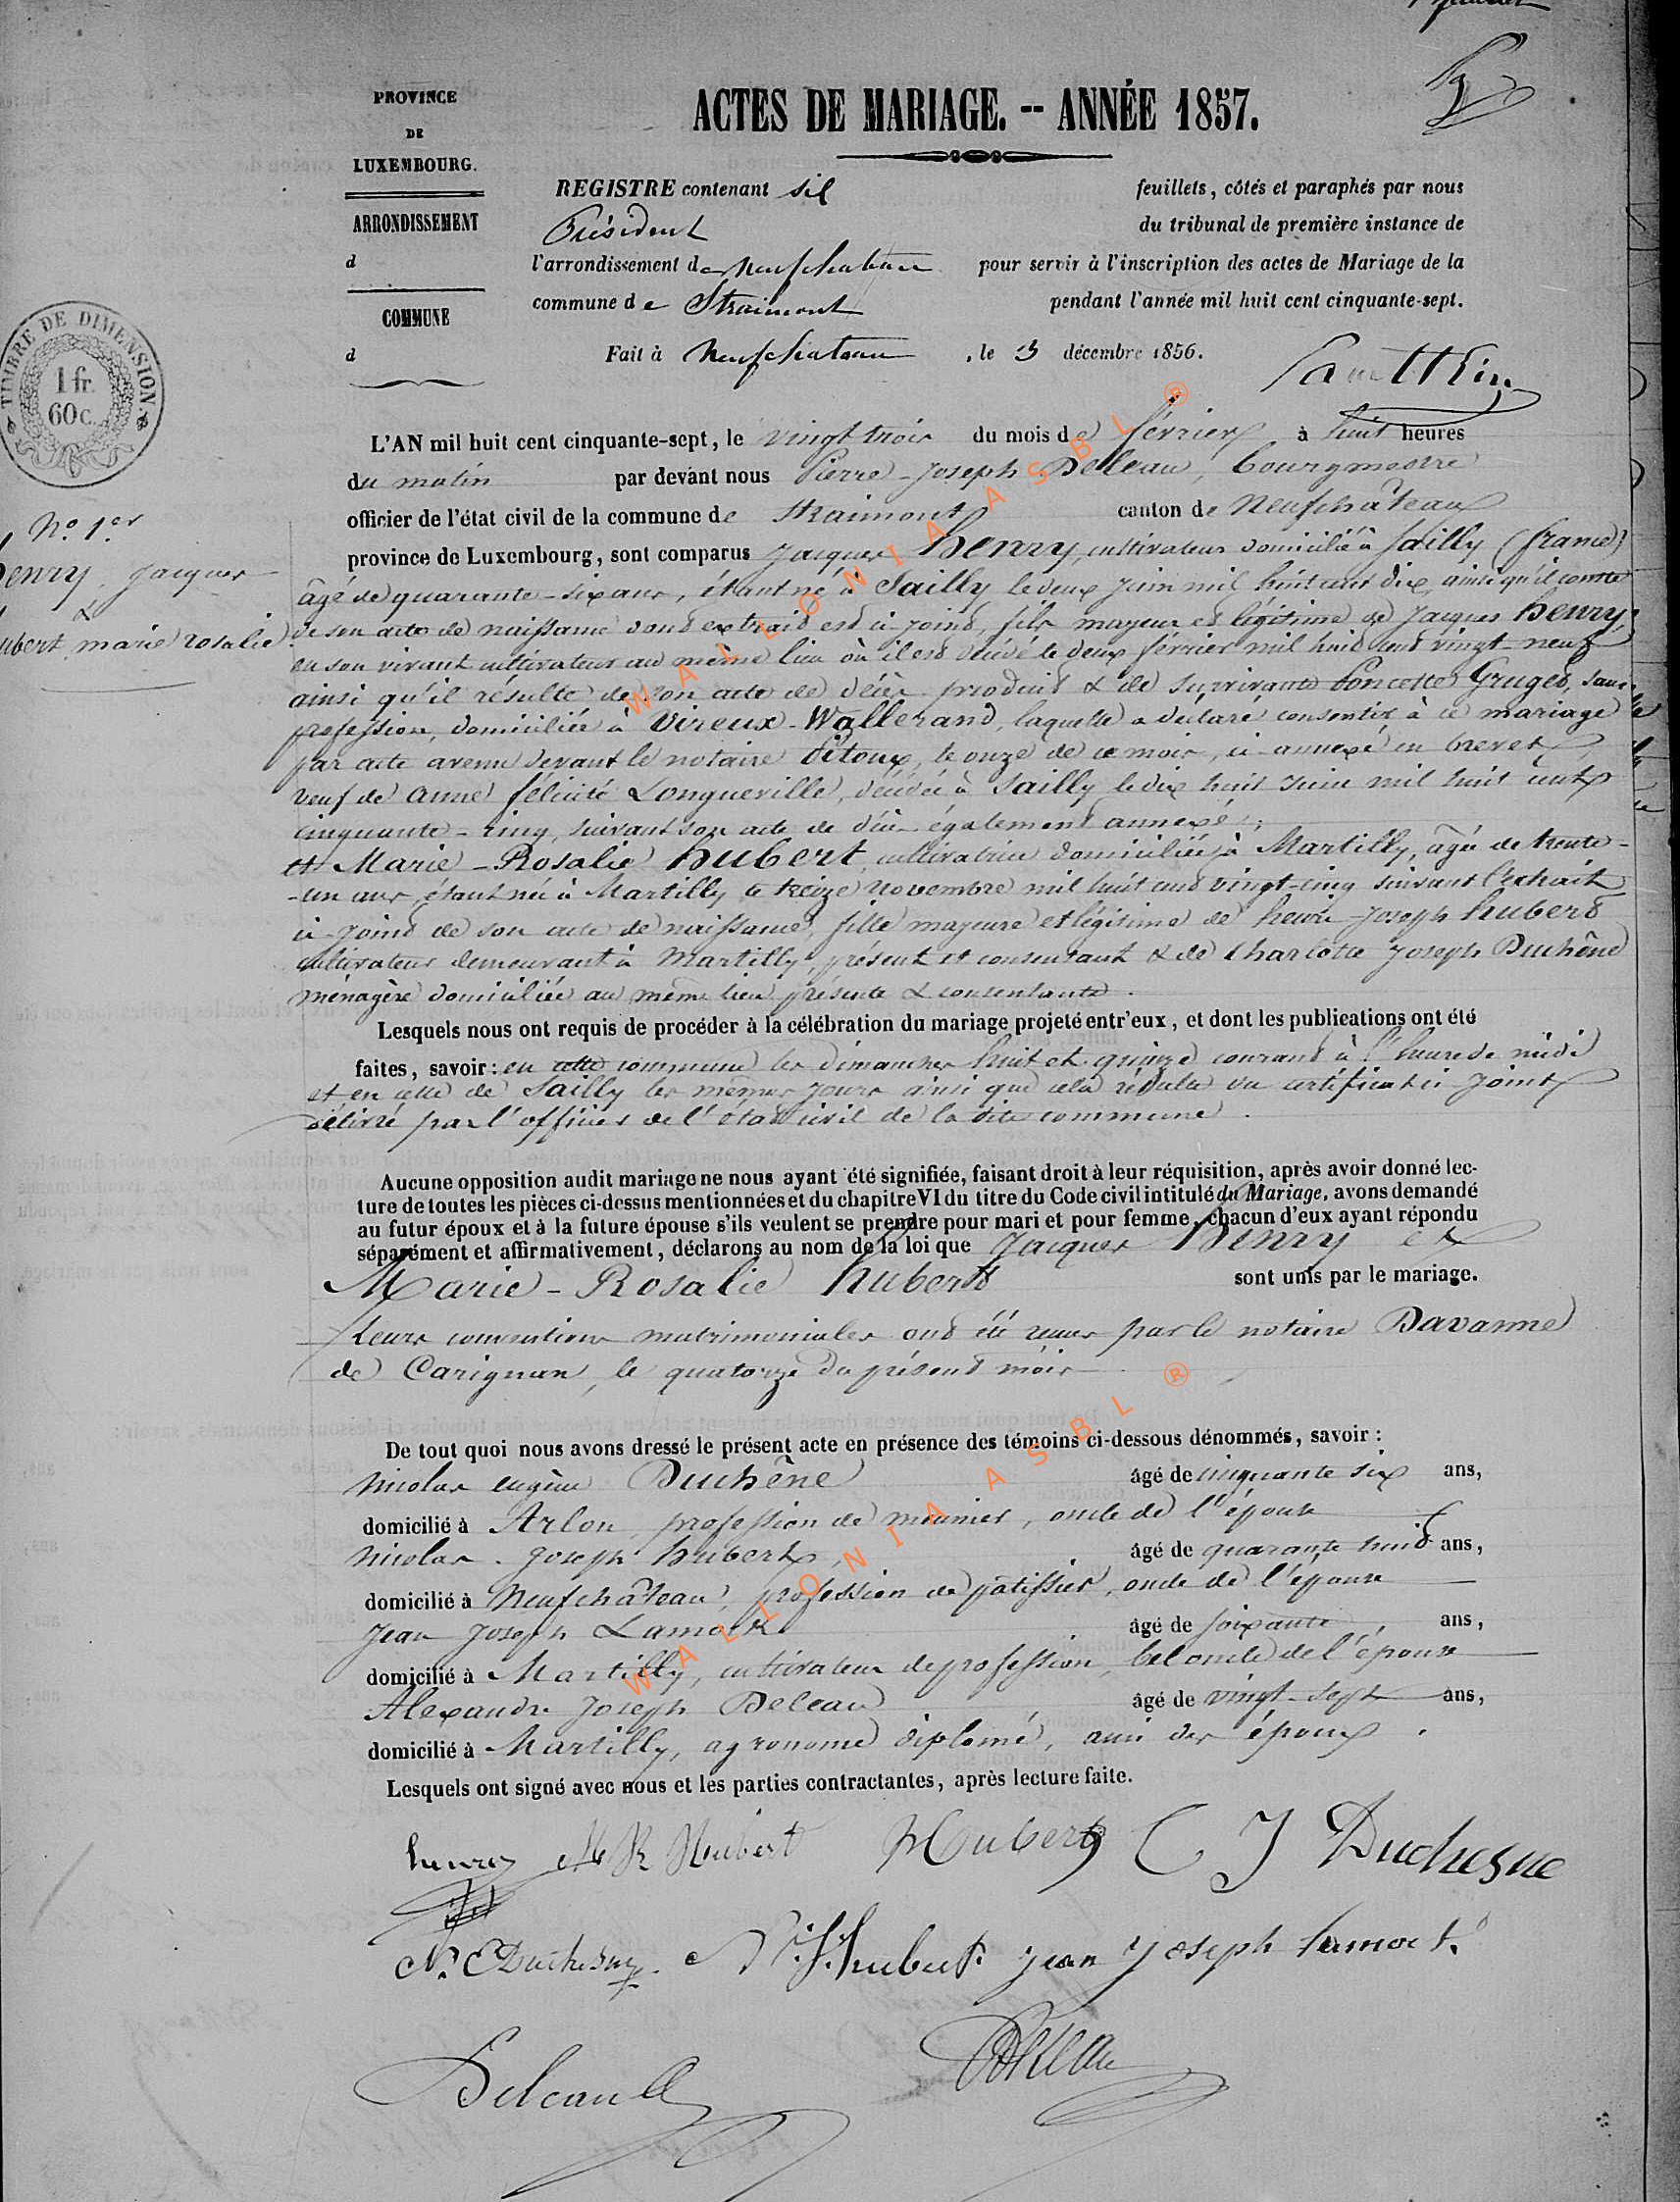 ACTES DE MARIAGE. -- ANNÉE 1857.
PROVINCE
DE
LUXEMBOURG.
ARRONDISSEMENT
d
COMMUNE
d
TIMBRE DE DIMENSION
1 fr.
60 c.
REGISTRE contenant six feuillets, côtés et paraphés par nous
Président du tribunal de première instance de
l'arrondissement de Neufchateau pour servir à l'inscription des actes de Mariage de la
commune de Straimont pendant l'année mil huit cent cinquante-sept.
Fait à Neufchateau, le 13 décembre 1856.
N.o 1.er
henry, Jacques
&
hubert, marie rosalie
L'AN mil huit cent cinquante-sept, le vingt trois du mois de février à huit heures
du matin par devant nous Pierre-Joseph Deleau, bourgmestre
officier de l'état civil de la commune de Straimont canton de Neufchâteau
province de Luxembourg, sont comparus Jacques henry, cultivateur domicilié à Sailly (france)
âgé de quarante-six ans, étant né à Sailly le deux juin mil huit cent dix, ainsi qu'il conste
de son acte de naissance dont extrait est ci-joint, fils majeur et légitime de Jacques henry,
en son vivant cultivateur au même lieu où il est décédé le deux février mil huit cent vingt-neuf
ainsi qu'il résulte de son acte de décès produit & de survivante Poncette Gruget, sans
profession, domiciliée à Vireux-Wallerand, laquelle a déclaré consentir à ce mariage
par acte avenu devant le notaire Détoux, le onze de ce mois, ci-annexé en brevet,
veuf de anne félicité Longueville, décédée à Sailly le dix huit juin mil huit cent
cinquante-cinq, suivant son acte de décès également annexé;
et Marie-Rosalie hubert, cultivatrice domiciliée à Martilly, âgée de trente-
-un ans, étant née à Martilly le treize novembre mil huit cent vingt-cinq suivant l'extrait
ci-joint de son acte de naissance, fille majeure et légitime de henri-Joseph hubert
cultivateur demeurant à Martilly, présent et consentant & de Charlotte Joseph Duchêne
ménagère domiciliée au même lieu présente & consentante.
Lesquels nous ont requis de procéder à la célébration du mariage projeté entr'eux, et dont les publications ont été
faites, savoir: en cette commune les dimanches huit et quinze courant à l'heure de midi
et en celle de Sailly les mêmes jours ainsi que cela résulte du certificat ci-joint
délivré par l'officier de l'état civil de la dite commune.
Aucune opposition audit mariage ne nous ayant été signifiée, faisant droit à leur réquisition, après avoir donné lec-
ture de toutes les pièces ci-dessus mentionnées et du chapitre VI du titre du Code civil intitulé du Mariage, avons demandé
au futur époux et à la future épouse s'ils veulent se prendre pour mari et pour femme, chacun d'eux ayant répondu
séparément et affirmativement, déclarons au nom de la loi que Jacques Henry et
Marie-Rosalie hubert sont unis par le mariage.
Leurs conventions matrimoniales ont été reçues par le notaire Davanne
de Carignan, le quatorze du présent mois.
De tout quoi nous avons dressé le présent acte en présence des témoins ci-dessous dénommés, savoir :
Nicolas eugène Duchêne âgé de cinquante six ans,
domicilié à Arlon, profession de meunier, oncle de l'épouse
Nicolas-Joseph hubert, âgé de quarante huit ans,
domicilié à Neufchâteau, profession de pâtissier, oncle de l'épouse
Jean Joseph Lamock âgé de soixante ans,
domicilié à Martilly, cultivateur de profession, bel oncle de l'épouse
Alexandre Joseph Deleau âgé de vingt-sept ans,
domicilié à Martilly, agronome diplomé, ami des époux.
Lesquels ont signé avec nous et les parties contractantes, après lecture faite.
henry M R Hubert Hubert C J Duchesne
N. E Duchesne N. J. hubert. jean Joseph Lamock
Deleau Deleau
WALLONIA ASBL ®
WALLONIA ASBL ®